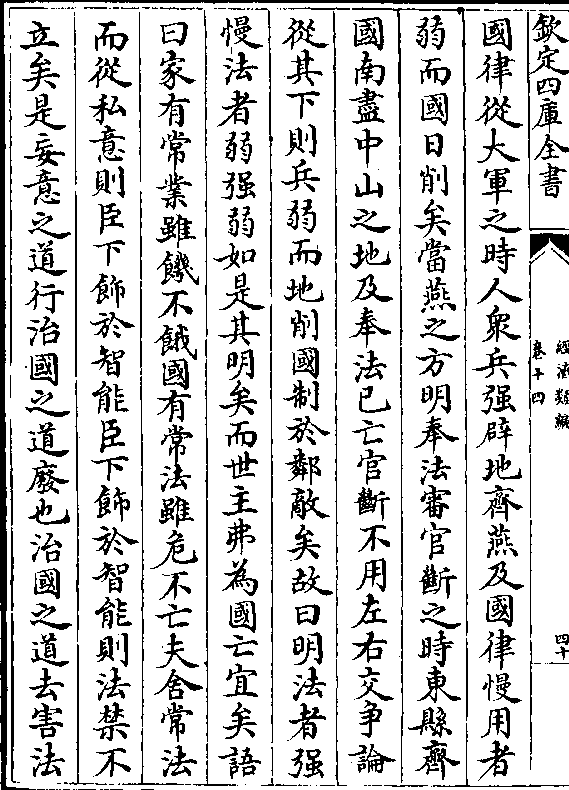 欽定四庫全書
經濟類編
卷十四
四十
國律從大軍之時人衆兵强辟地齊燕及國律慢用者
弱而國日削矣當燕之方明奉法審官斷之時東縣齊
國南盡中山之地及奉法已亡官斷不用左右交争論
從其下則兵弱而地削國制於鄰敵矣故曰明法者强
慢法者弱强弱如是其明矣而世主弗為國亡宜矣語
曰家有常業雖饑不餓國有常法雖危不亡夫舍常法
而從私意則臣下飾於智能臣下飾於智能則法禁不
立矣是妄意之道行治國之道廢也治國之道去害法